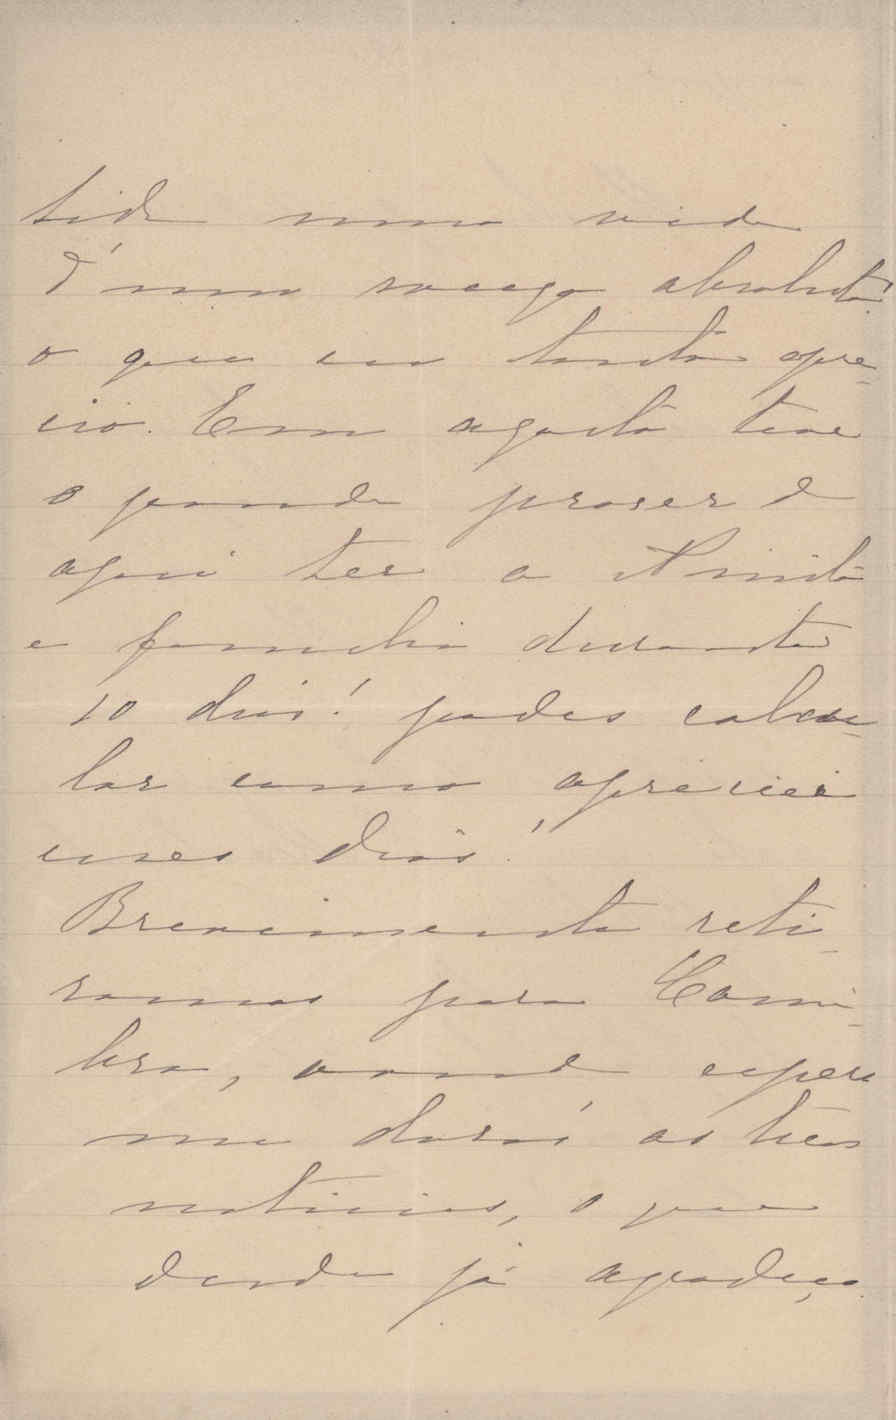 tido uma vida
d'um socego absoluto
o que eu tanto apre-
cio. Em agosto tive
o grande praser de
aqui ter a
e familia durante
10 dias! podes calcu-
lar como apreciei
esses dias!
Brevemente reti-
ramos para Coim-
bra, aonde espero
me darás as tuas
noticias, o que
desde já agradeço.